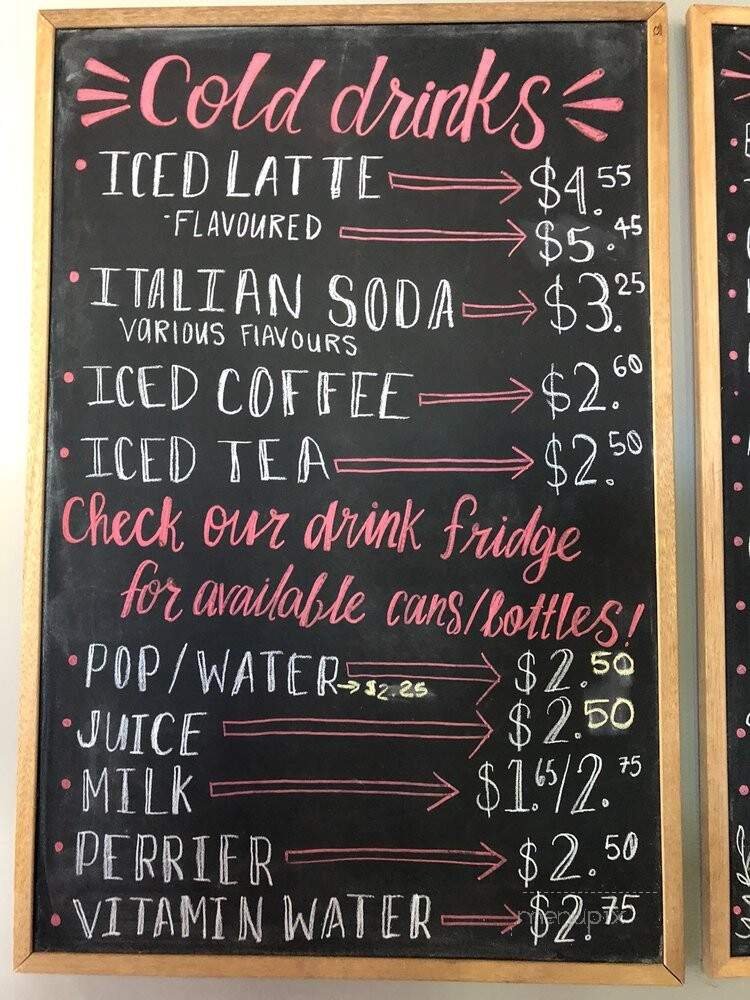 Cold drinks
• ICED LATTE $4.55
-FLAVOURED $5.45
• ITALIAN SODA $3.25
VARIOUS FLAVOURS
• ICED COFFEE $2.60
• ICED TEA $2.50
Check our drink fridge
for available cans/bottles!
• POP/WATER $2.50
→$2.25
• JUICE $2.50
• MILK $1.65/2.75
• PERRIER $2.50
• VITAMIN WATER $2.75
menupix